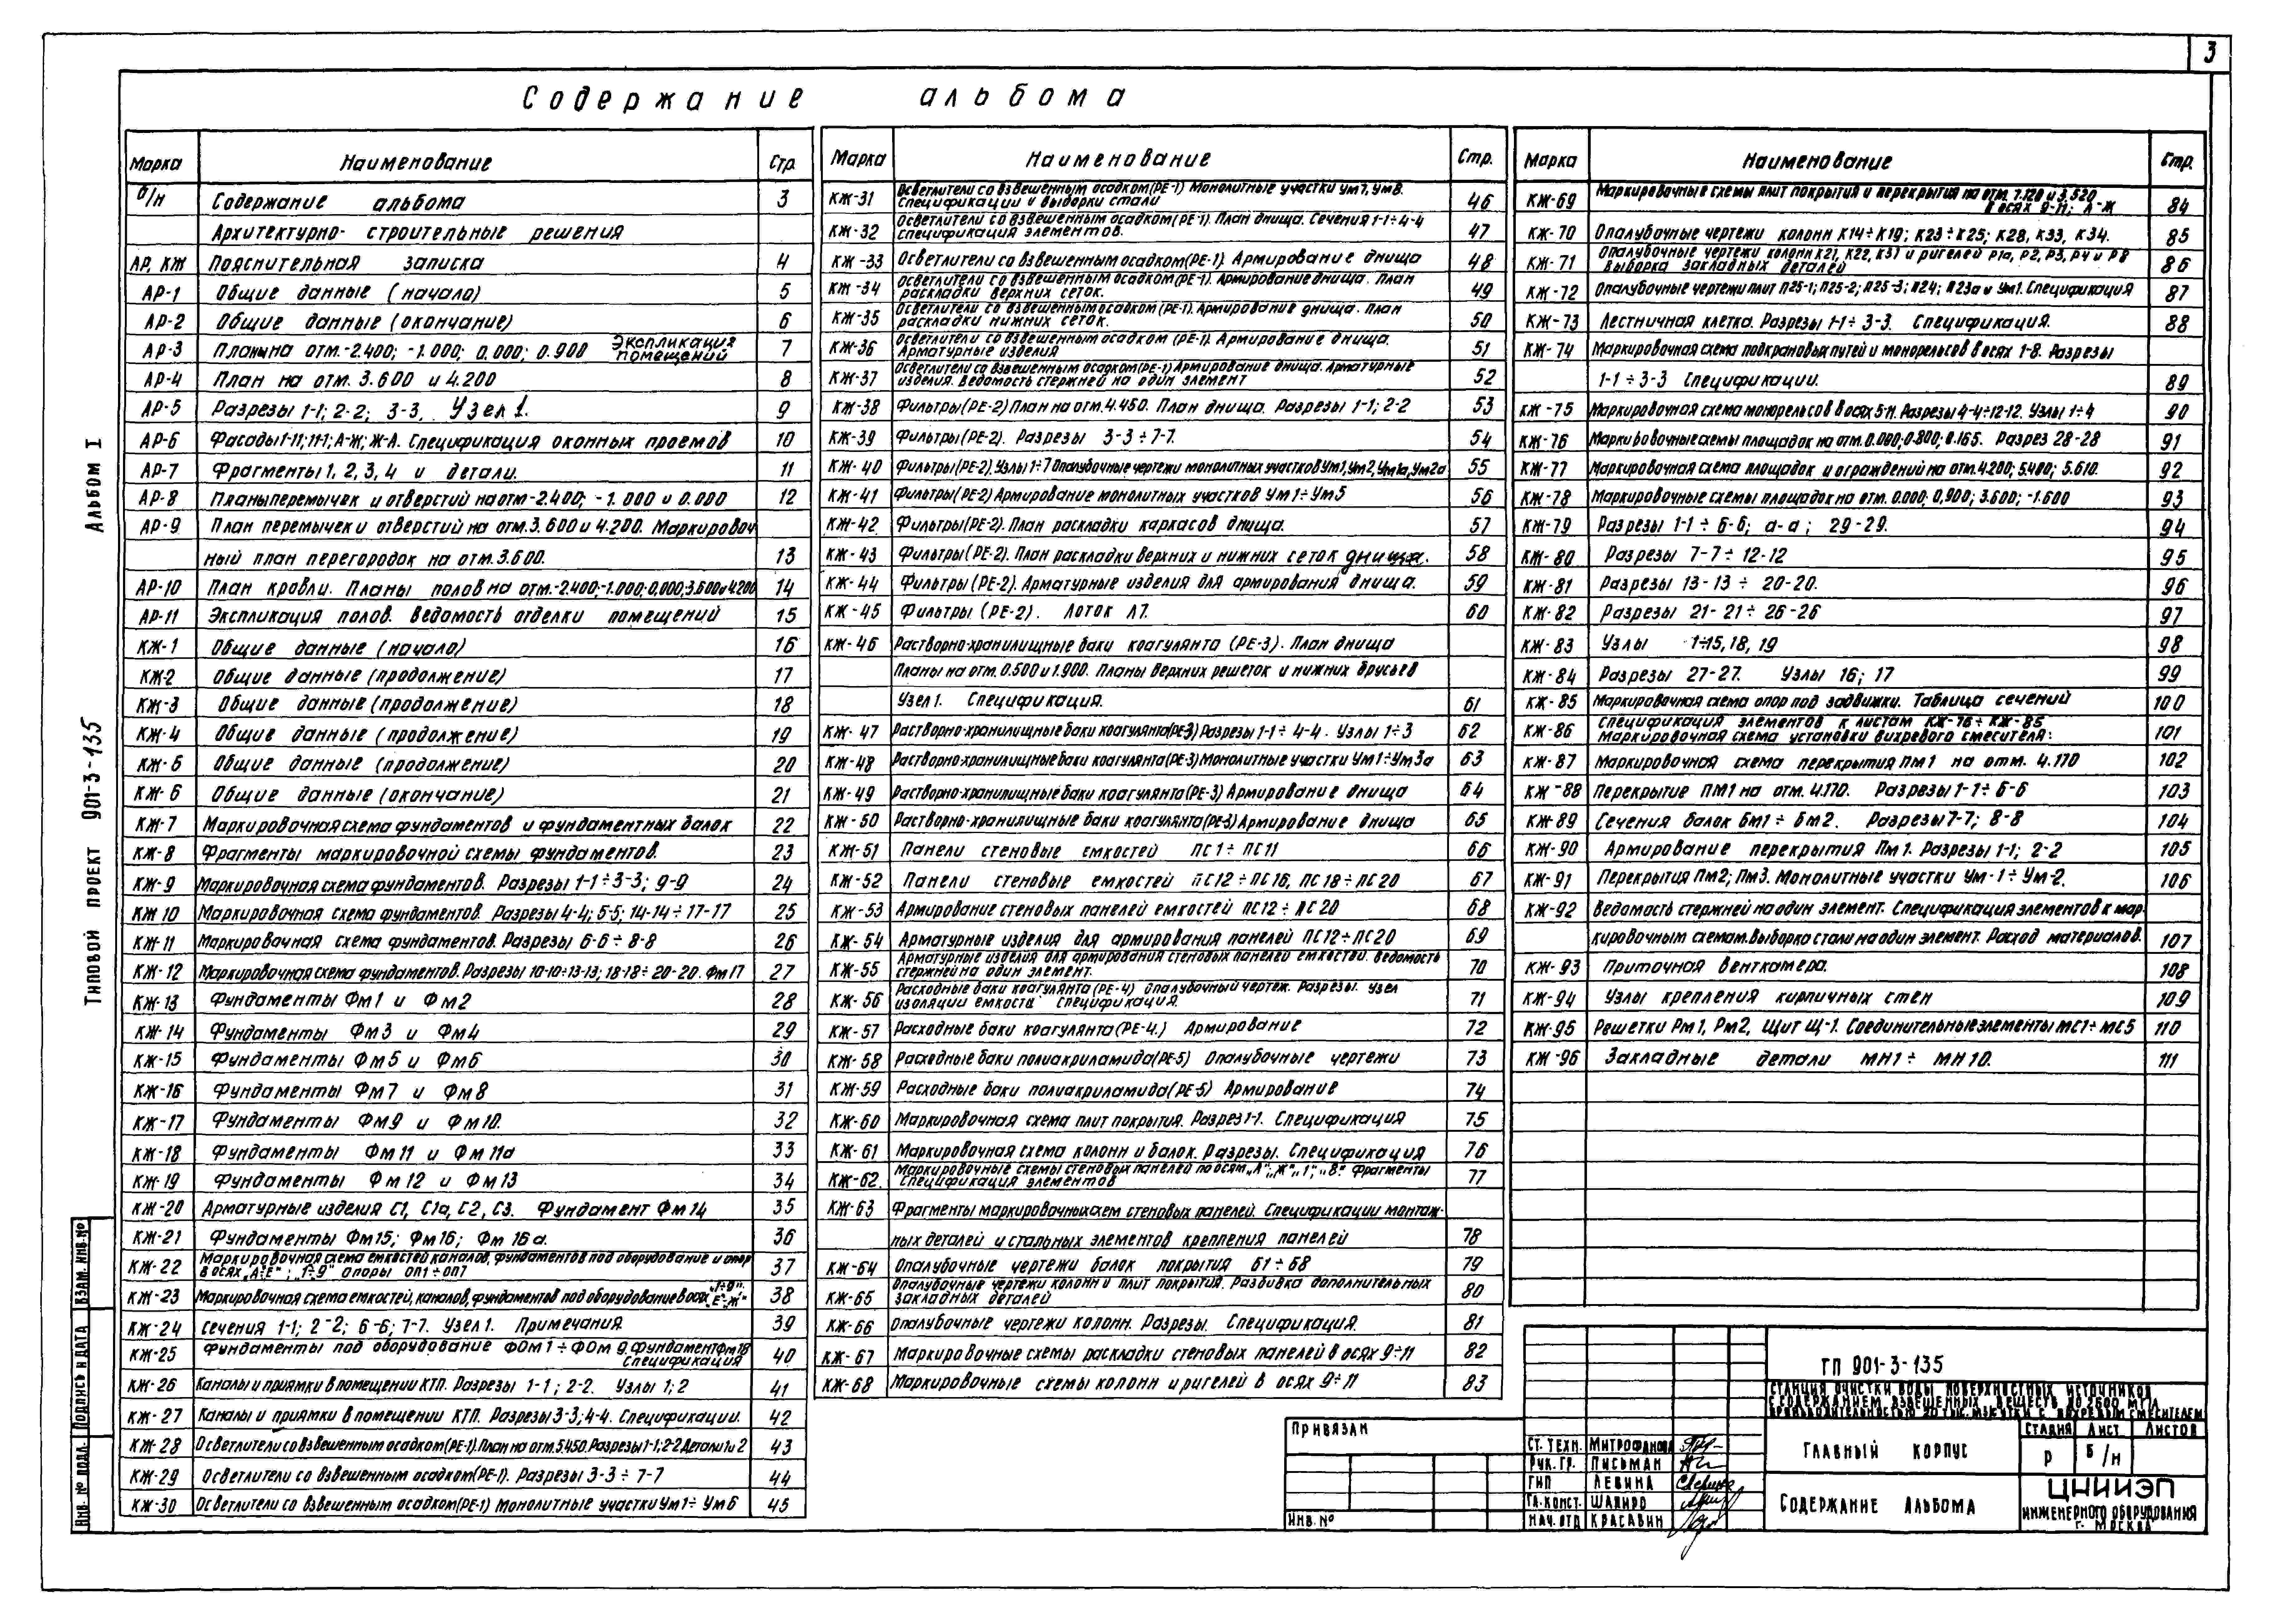 3
Содержание альбома
Марка Наименование Стр.
б/н Содержание альбома 3
Архитектурно-строительные решения
АР, КЖ Пояснительная записка 4
АР-1 Общие данные (начало) 5
АР-2 Общие данные (окончание) 6
АР-3 Планы на отм. -2.400; -1.000; 0.000; 0.900 Экспликация помещений 7
АР-4 План на отм. 3.600 и 4.200 8
АР-5 Разрезы 1-1; 2-2; 3-3. Узел 1. 9
АР-6 Фасады 1-11; 11-1; А-Ж; Ж-А. Спецификация оконных проемов 10
АР-7 Фрагменты 1, 2, 3, 4 и детали. 11
АР-8 Планы перемычек и отверстий на отм -2.400; -1.000 и 0.000 12
АР-9 План перемычек и отверстий на отм. 3.600 и 4.200. Маркировоч
ный план перегородок на отм. 3.600. 13
АР-10 План кровли. Планы полов на отм. -2.400; -1.000; 0.000; 3.600 и 4.200 14
АР-11 Экспликация полов. Ведомость отделки помещений 15
КЖ-1 Общие данные (начало) 16
КЖ-2 Общие данные (продолжение) 17
КЖ-3 Общие данные (продолжение) 18
КЖ-4 Общие данные (продолжение) 19
КЖ-5 Общие данные (продолжение) 20
КЖ-6 Общие данные (окончание) 21
КЖ-7 Маркировочная схема фундаментов и фундаментных балок 22
КЖ-8 Фрагменты маркировочной схемы фундаментов. 23
КЖ-9 Маркировочная схема фундаментов. Разрезы 1-1÷3-3; 9-9 24
КЖ 10 Маркировочная схема фундаментов. Разрезы 4-4; 5-5; 14-14÷17-17 25
КЖ-11 Маркировочная схема фундаментов. Разрезы 6-6÷8-8 26
КЖ-12 Маркировочная схема фундаментов. Разрезы 10-10÷13-13; 18-18÷20-20. Фм17 27
КЖ-13 Фундаменты Фм1 и Фм2 28
КЖ-14 Фундаменты Фм3 и Фм4 29
КЖ-15 Фундаменты Фм5 и Фм6 30
КЖ-16 Фундаменты Фм7 и Фм8 31
КЖ-17 Фундаменты Фм9 и Фм10. 32
КЖ-18 Фундаменты Фм11 и Фм11а 33
КЖ-19 Фундаменты Фм12 и Фм13 34
КЖ-20 Арматурные изделия С1, С1а, С2, С3. Фундамент Фм14 35
КЖ-21 Фундаменты Фм15; Фм16; Фм16а. 36
КЖ-22 Маркировочная схема емкостей каналов, фундаментов под оборудование и опор
в осях „А÷Е"; „1÷9" опоры ОП1÷ОП7 37
КЖ-23 Маркировочная схема емкостей, каналов, фундаментов под оборудование в осях „1÷9"; „Е÷Ж" 38
КЖ-24 Сечения 1-1; 2-2; 6-6; 7-7. Узел 1. Примечания. 39
КЖ-25 Фундаменты под оборудование ФОм1÷ФОм9. Фундамент Фм18
Спецификация 40
КЖ-26 Каналы и приямки в помещении КТП. Разрезы 1-1; 2-2. Узлы 1; 2 41
КЖ-27 Каналы и приямки в помещении КТП. Разрезы 3-3; 4-4. Спецификации. 42
КЖ-28 Осветлители со взвешенным осадком (РЕ-1). План на отм. 5.450. Разрезы 1-1; 2-2 Детали 1 и 2 43
КЖ-29 Осветлители со взвешенным осадком (РЕ-1). Разрезы 3-3÷7-7 44
КЖ-30 Осветлители со взвешенным осадком (РЕ-1) Монолитные участки Ум1÷Ум6 45
Марка Наименование Стр.
КЖ-31 Осветлители со взвешенным осадком (РЕ-1) Монолитные участки Ум7, Ум8.
Спецификации и выборки стали 46
КЖ-32 Осветлители со взвешенным осадком (РЕ-1). План днища. Сечения 1-1÷4-4
Спецификация элементов. 47
КЖ-33 Осветлители со взвешенным осадком (РЕ-1). Армирование днища 48
КЖ-34 Осветлители со взвешенным осадком (РЕ-1). Армирование днища. План
раскладки верхних сеток. 49
КЖ-35 Осветлители со взвешенным осадком (РЕ-1). Армирование днища. План
раскладки нижних сеток. 50
КЖ-36 Осветлители со взвешенным осадком (РЕ-1). Армирование днища.
Арматурные изделия 51
КЖ-37 Осветлители со взвешенным осадком (РЕ-1) Армирование днища. Арматурные
изделия. Ведомость стержней на один элемент 52
КЖ-38 Фильтры (РЕ-2) План на отм. 4.450. План днища. Разрезы 1-1; 2-2 53
КЖ-39 Фильтры (РЕ-2). Разрезы 3-3÷7-7. 54
КЖ-40 Фильтры (РЕ-2). Узлы 1÷7 Опалубочные чертежи монолитных участков Ум1, Ум2, Ум1а, Ум2а 55
КЖ-41 Фильтры (РЕ-2) Армирование монолитных участков Ум1÷Ум5 56
КЖ-42 Фильтры (РЕ-2). План раскладки каркасов днища. 57
КЖ-43 Фильтры (РЕ-2). План раскладки верхних и нижних сеток днища. 58
КЖ-44 Фильтры (РЕ-2). Арматурные изделия для армирования днища. 59
КЖ-45 Фильтры (РЕ-2). Лоток Л7. 60
КЖ-46 Растворно-хранилищные баки коагулянта (РЕ-3). План днища
Планы на отм. 0.500 и 1.900. Планы верхних решеток и нижних брусьев
Узел 1. Спецификация. 61
КЖ-47 Растворно-хранилищные баки коагулянта (РЕ-3) Разрезы 1-1÷4-4. Узлы 1÷3 62
КЖ-48 Растворно-хранилищные баки коагулянта (РЕ-3) Монолитные участки Ум1÷Ум3а 63
КЖ-49 Растворно-хранилищные баки коагулянта (РЕ-3) Армирование днища 64
КЖ-50 Растворно-хранилищные баки коагулянта (РЕ-3) Армирование днища 65
КЖ-51 Панели стеновые емкостей ПС1÷ПС11 66
КЖ-52 Панели стеновые емкостей ПС12÷ПС16, ПС18÷ПС20 67
КЖ-53 Армирование стеновых панелей емкостей ПС12÷ПС20 68
КЖ-54 Арматурные изделия для армирования панелей ПС12÷ПС20 69
КЖ-55 Арматурные изделия для армирования стеновых панелей емкостей. Ведомость
стержней на один элемент. 70
КЖ-56 Расходные баки коагулянта (РЕ-4) Опалубочный чертеж. Разрезы. Узел
изоляции емкости Спецификация. 71
КЖ-57 Расходные баки коагулянта (РЕ-4.) Армирование 72
КЖ-58 Расходные баки полиакриламида (РЕ-5) Опалубочные чертежи 73
КЖ-59 Расходные баки полиакриламида (РЕ-5) Армирование 74
КЖ-60 Маркировочная схема плит покрытия. Разрез 1-1. Спецификация 75
КЖ-61 Маркировочная схема колонн и балок. Разрезы. Спецификация 76
КЖ-62. Маркировочные схемы стеновых панелей по осям „А", „Ж", „1", „8". Фрагменты
Спецификация элементов 77
КЖ-63 Фрагменты маркировочных схем стеновых панелей. Спецификации монтаж-
ных деталей и стальных элементов крепления панелей 78
КЖ-64 Опалубочные чертежи балок покрытия Б1÷Б8 79
КЖ-65 Опалубочные чертежи колонн и плит покрытия. Разбивка дополнительных
закладных деталей 80
КЖ-66 Опалубочные чертежи колонн. Разрезы. Спецификация. 81
КЖ-67 Маркировочные схемы раскладки стеновых панелей в осях 9÷11 82
КЖ-68 Маркировочные схемы колонн и ригелей в осях 9÷11 83
Марка Наименование Стр.
КЖ-69 Маркировочные схемы плит покрытия и перекрытия на отм. 7.120 и 3.520
в осях 9-11; А-Ж 84
КЖ-70 Опалубочные чертежи колонн К14÷К19; К23÷К25; К28, К33, К34. 85
КЖ-71 Опалубочные чертежи колонн К21, К22, К31 и ригелей Р1а, Р2, Р3, Р4 и Р8
Выборка закладных деталей 86
КЖ-72 Опалубочные чертежи плит П25-1; П25-2; П25-3; П24; П23а и Ум1. Спецификация 87
КЖ-73 Лестничная клетка. Разрезы 1-1÷3-3. Спецификация. 88
КЖ-74 Маркировочная схема подкрановых путей и монорельсов в осях 1-8. Разрезы
1-1÷3-3 Спецификации. 89
КЖ-75 Маркировочная схема монорельсов в осях 5-11. Разрезы 4-4÷12-12. Узлы 1÷4 90
КЖ-76 Маркировочные схемы площадок на отм. 0.000; 0.800; 0.165. Разрез 28-28 91
КЖ-77 Маркировочная схема площадок и ограждений на отм. 4.200; 5.400; 5.610. 92
КЖ-78 Маркировочные схемы площадок на отм. 0.000; 0,900; 3.600; -1.600 93
КЖ-79 Разрезы 1-1÷6-6; а-а; 29-29. 94
КЖ-80 Разрезы 7-7÷12-12 95
КЖ-81 Разрезы 13-13÷20-20. 96
КЖ-82 Разрезы 21-21÷26-26 97
КЖ-83 Узлы 1÷15, 18, 19 98
КЖ-84 Разрезы 27-27. Узлы 16; 17 99
КЖ-85 Маркировочная схема опор под задвижки. Таблица сечений 100
КЖ-86 Спецификация элементов к листам КЖ-76÷КЖ-85
Маркировочная схема установки вихревого смесителя. 101
КЖ-87 Маркировочная схема перекрытия Пм1 на отм. 4.170 102
КЖ-88 Перекрытие ПМ1 на отм. 4.170. Разрезы 1-1÷6-6 103
КЖ-89 Сечения балок Бм1÷Бм2. Разрезы 7-7; 8-8 104
КЖ-90 Армирование перекрытия Пм1. Разрезы 1-1; 2-2 105
КЖ-91 Перекрытия Пм2; Пм3. Монолитные участки Ум-1÷Ум-2. 106
КЖ-92 Ведомость стержней на один элемент. Спецификация элементов к мар-
кировочным схемам. Выборка стали на один элемент. Расход материалов. 107
КЖ-93 Приточная венткамера. 108
КЖ-94 Узлы крепления кирпичных стен 109
КЖ-95 Решетки Рм1, Рм2, Щит Щ-1. Соединительные элементы МС1÷МС5 110
КЖ-96 Закладные детали МН1÷МН10. 111
Типовой проект 901-3-135 Альбом I
Взам. инв. №
Подпись и дата
Инв. № подл.
Привязан
Инв. №
ТП 901-3-135
Станция очистки воды поверхностных источников
с содержанием взвешенных веществ до 2500 мг/л
производительностью 20 тыс. м³/сутки с вихревым смесителем
Ст. техн. Митрофанова
Рук. гр. Письман
ГИП Левина
Гл. конст. Шапиро
Нач. отд Красавин
Главный корпус
Стадия Лист Листов
Р б/н
Содержание альбома
ЦНИИЭП
инженерного оборудования
г. Москва